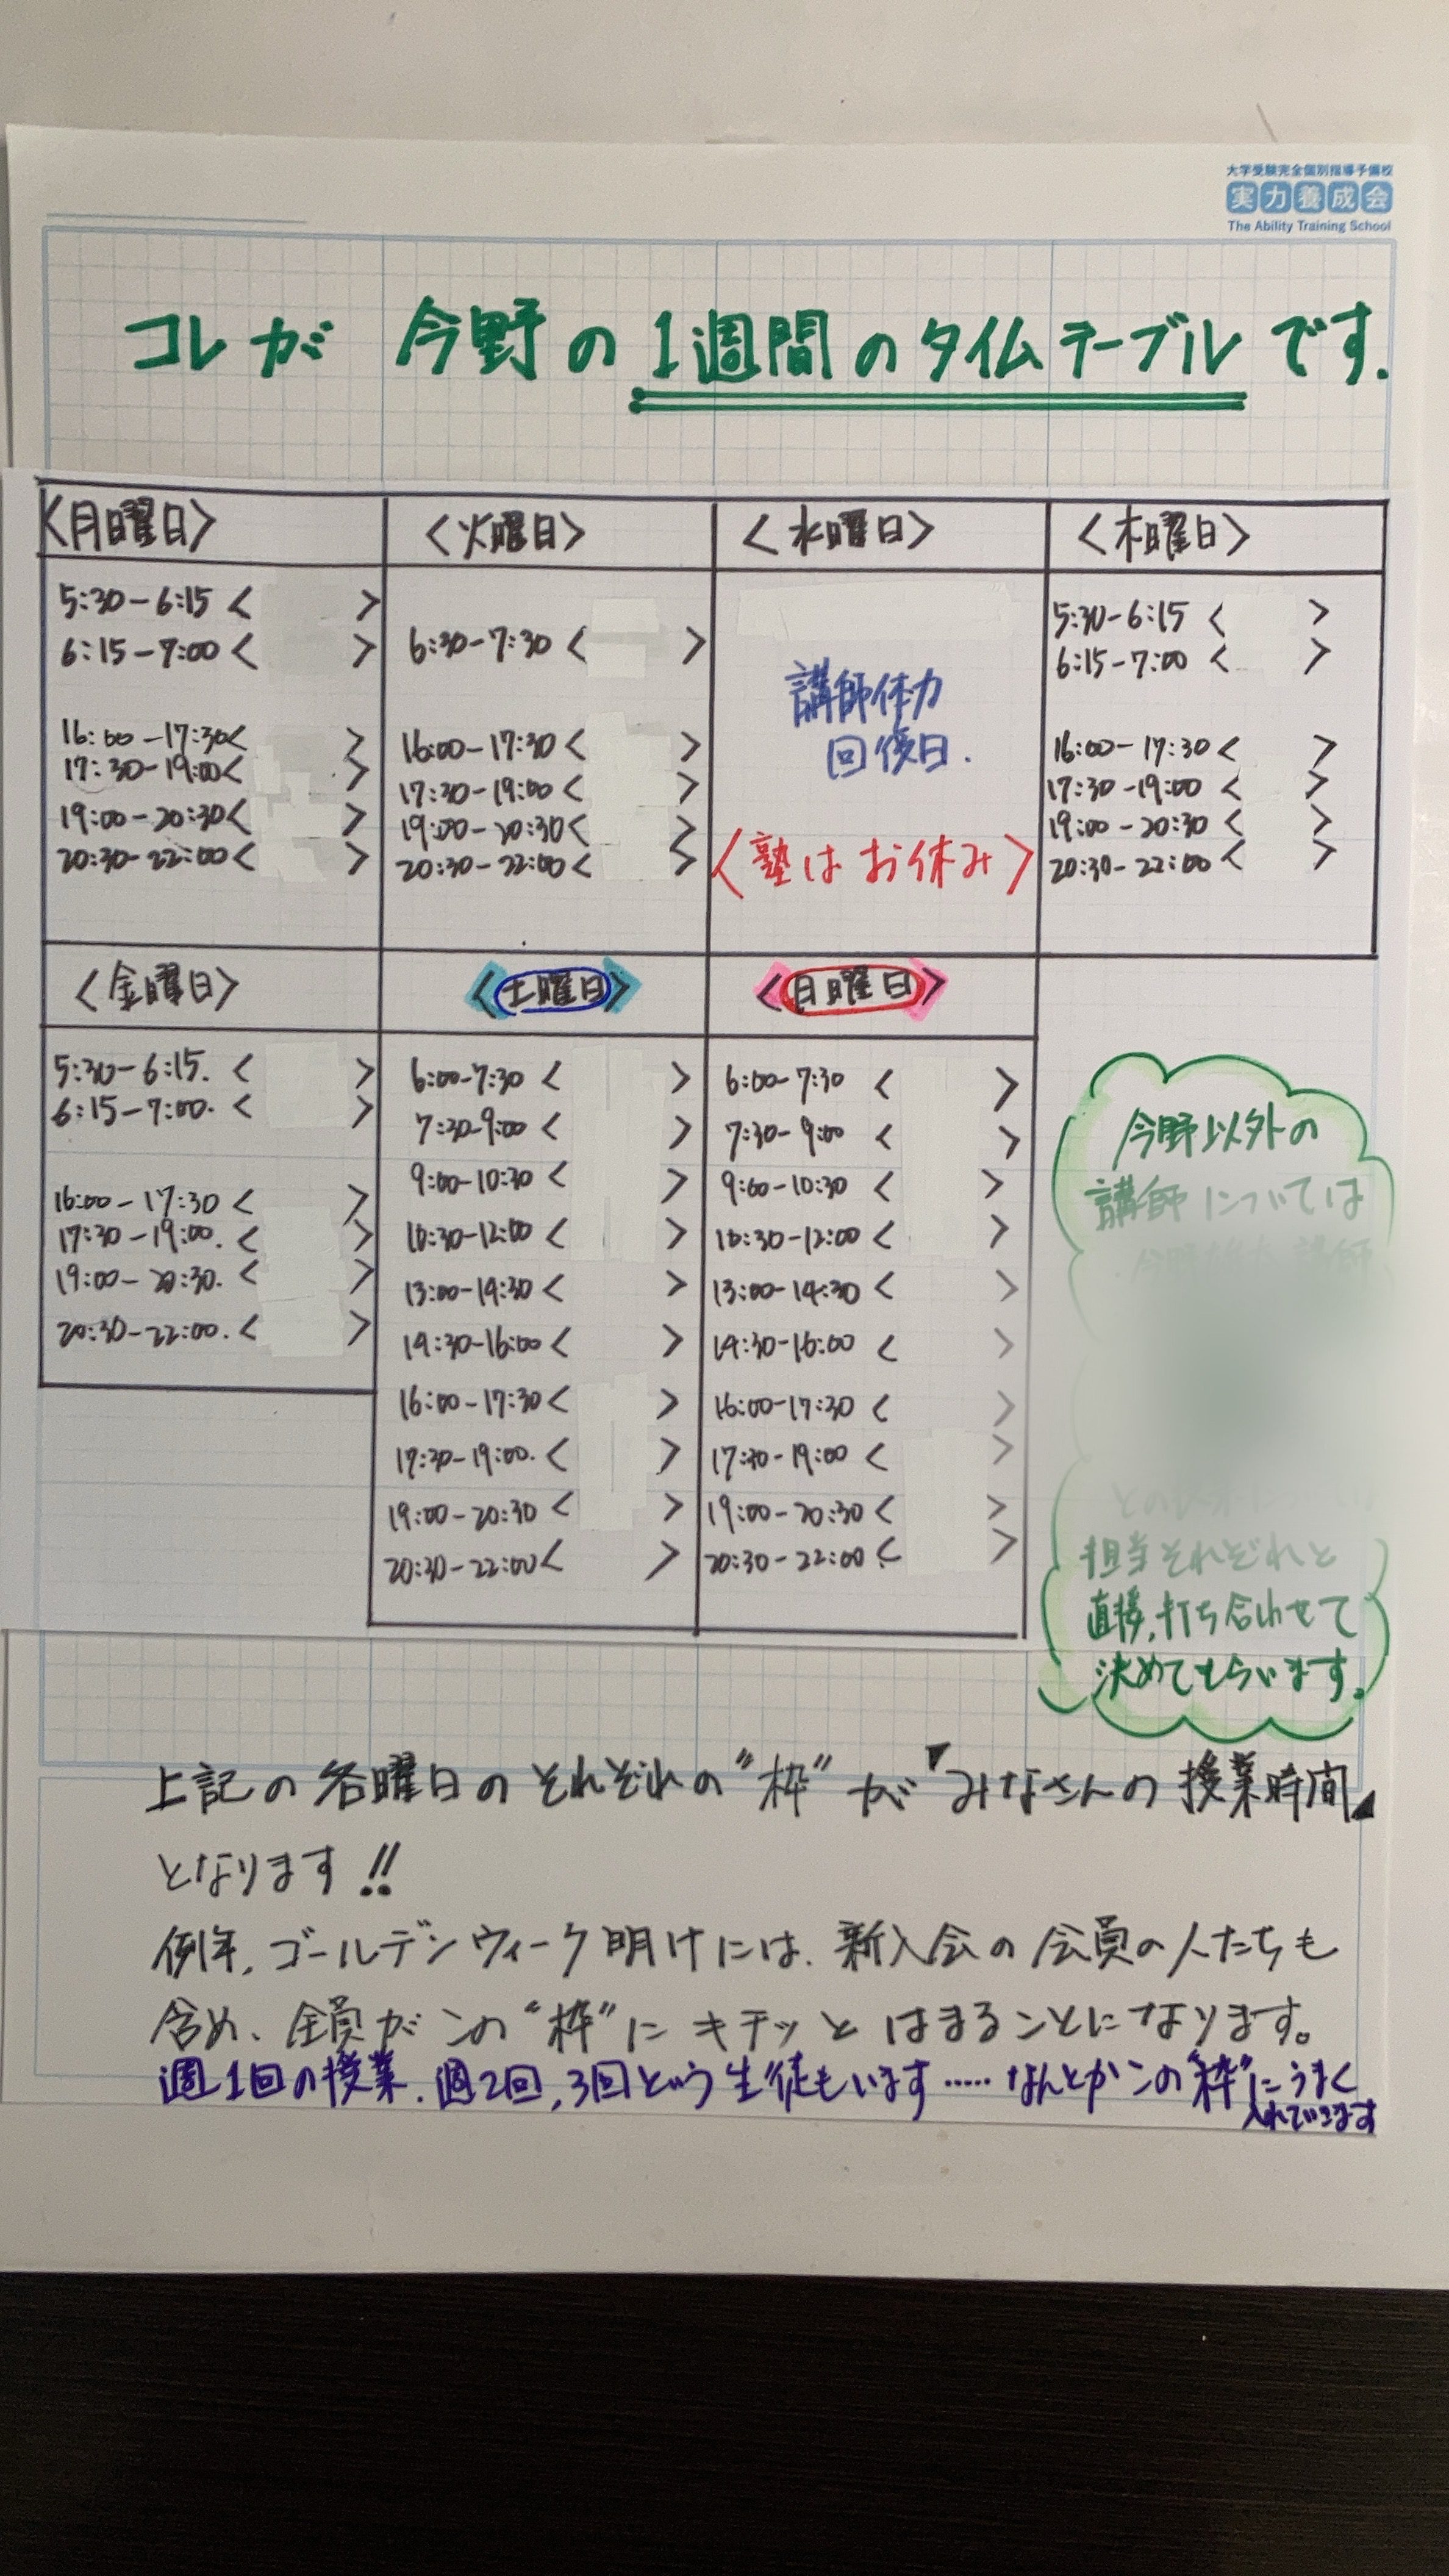 大学受験完全個別指導予備校
実力養成会
The Ability Training School
コレが 今野の1週間のタイムテーブルです.
<月曜日>
5:30-6:15 < >
6:15-7:00 < >
16:00-17:30< >
17:30-19:00< >
19:00-20:30< >
20:30-22:00< >
<火曜日>
6:30-7:30 < >
16:00-17:30 < >
17:30-19:00 < >
19:00-20:30< >
20:30-22:00< >
<水曜日>
講師体力
回復日.
<塾はお休み>
<木曜日>
5:30-6:15 < >
6:15-7:00 < >
16:00-17:30 < >
17:30-19:00 < >
19:00-20:30 < >
20:30-22:00 < >
<金曜日>
5:30-6:15. < >
6:15-7:00. < >
16:00-17:30 < >
17:30-19:00. < >
19:00-20:30. < >
20:30-22:00. < >
<土曜日>
6:00-7:30 < >
7:30-9:00 < >
9:00-10:30 < >
10:30-12:00 < >
13:00-14:30 < >
14:30-16:00 < >
16:00-17:30 < >
17:30-19:00. < >
19:00-20:30 < >
20:30-22:00 < >
<日曜日>
6:00-7:30 < >
7:30-9:00 < >
9:00-10:30 < >
10:30-12:00 < >
13:00-14:30 < >
14:30-16:00 < >
16:00-17:30 < >
17:30-19:00 < >
19:00-20:30 < >
20:30-22:00 < >
今野以外の
講師については
講師
との
担当それぞれと
直接,打ち合わせて
決めてもらいます。
上記の各曜日のそれぞれの"枠"が「みなさんの授業時間」
となります!!
例年,ゴールデンウィーク明けには、新入会の会員の人たちも
含め、全員がこの"枠"にキチッとはまることになります。
週1回の授業、週2回,3回という生徒もいます.....なんとかこの"枠"にうまく
入れていきます